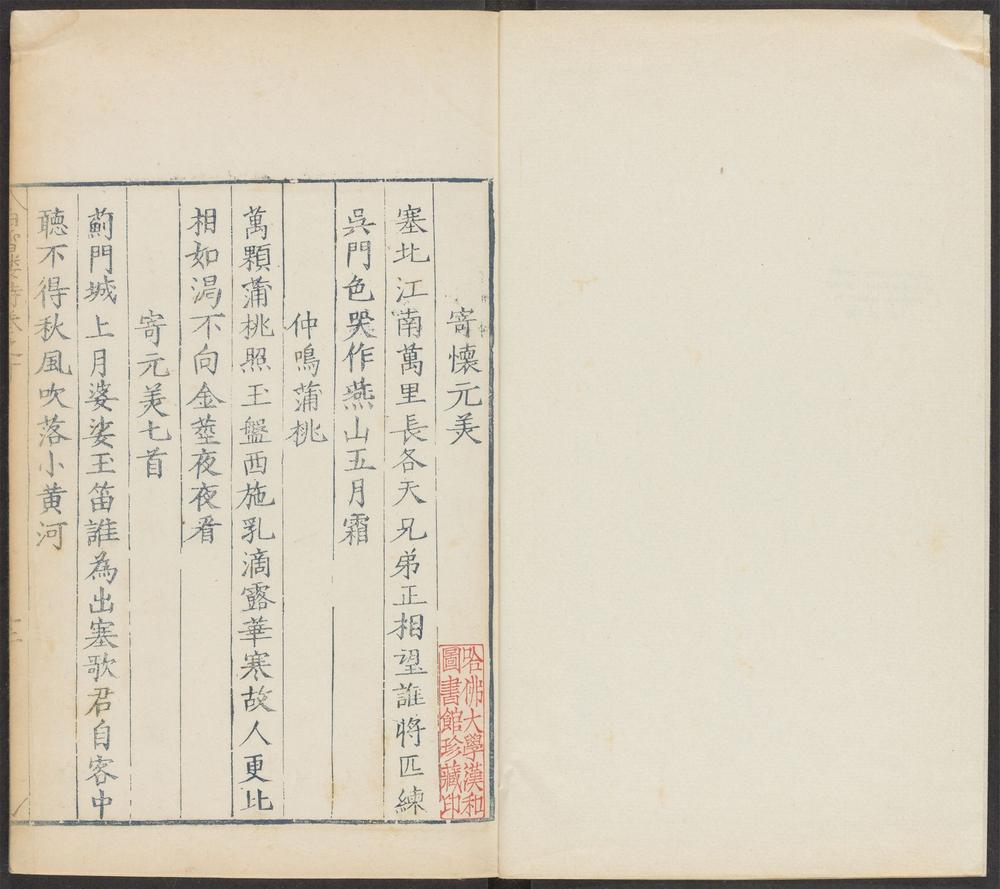 寄懷元美
塞北江南萬里長各天兄弟正相望誰將匹練
吳門色哭作燕山五月霜
仲鳴蒲桃
萬顆蒲桃照玉盤西施乳滴露華寒故人更比
相如渴不向金莖夜夜看
寄元美七首
薊門城上月婆娑玉笛誰為出塞歌君自客中
聽不得秋風吹落小黃河
哈佛大學漢和
圖書館珍藏印